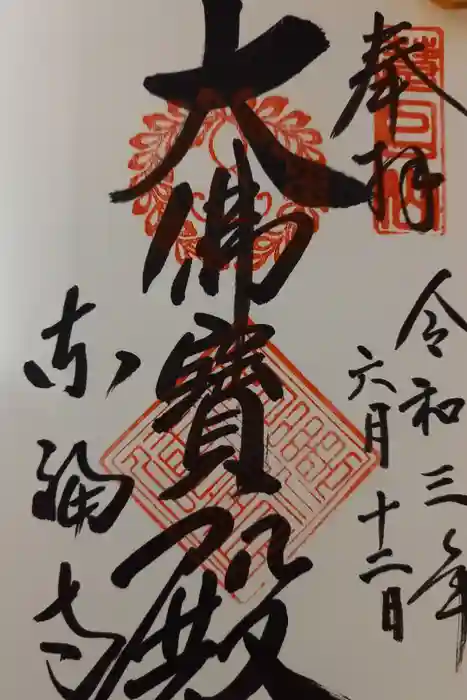 奉拝
令和三年
六月十二日
大佛寳殿
东福寺